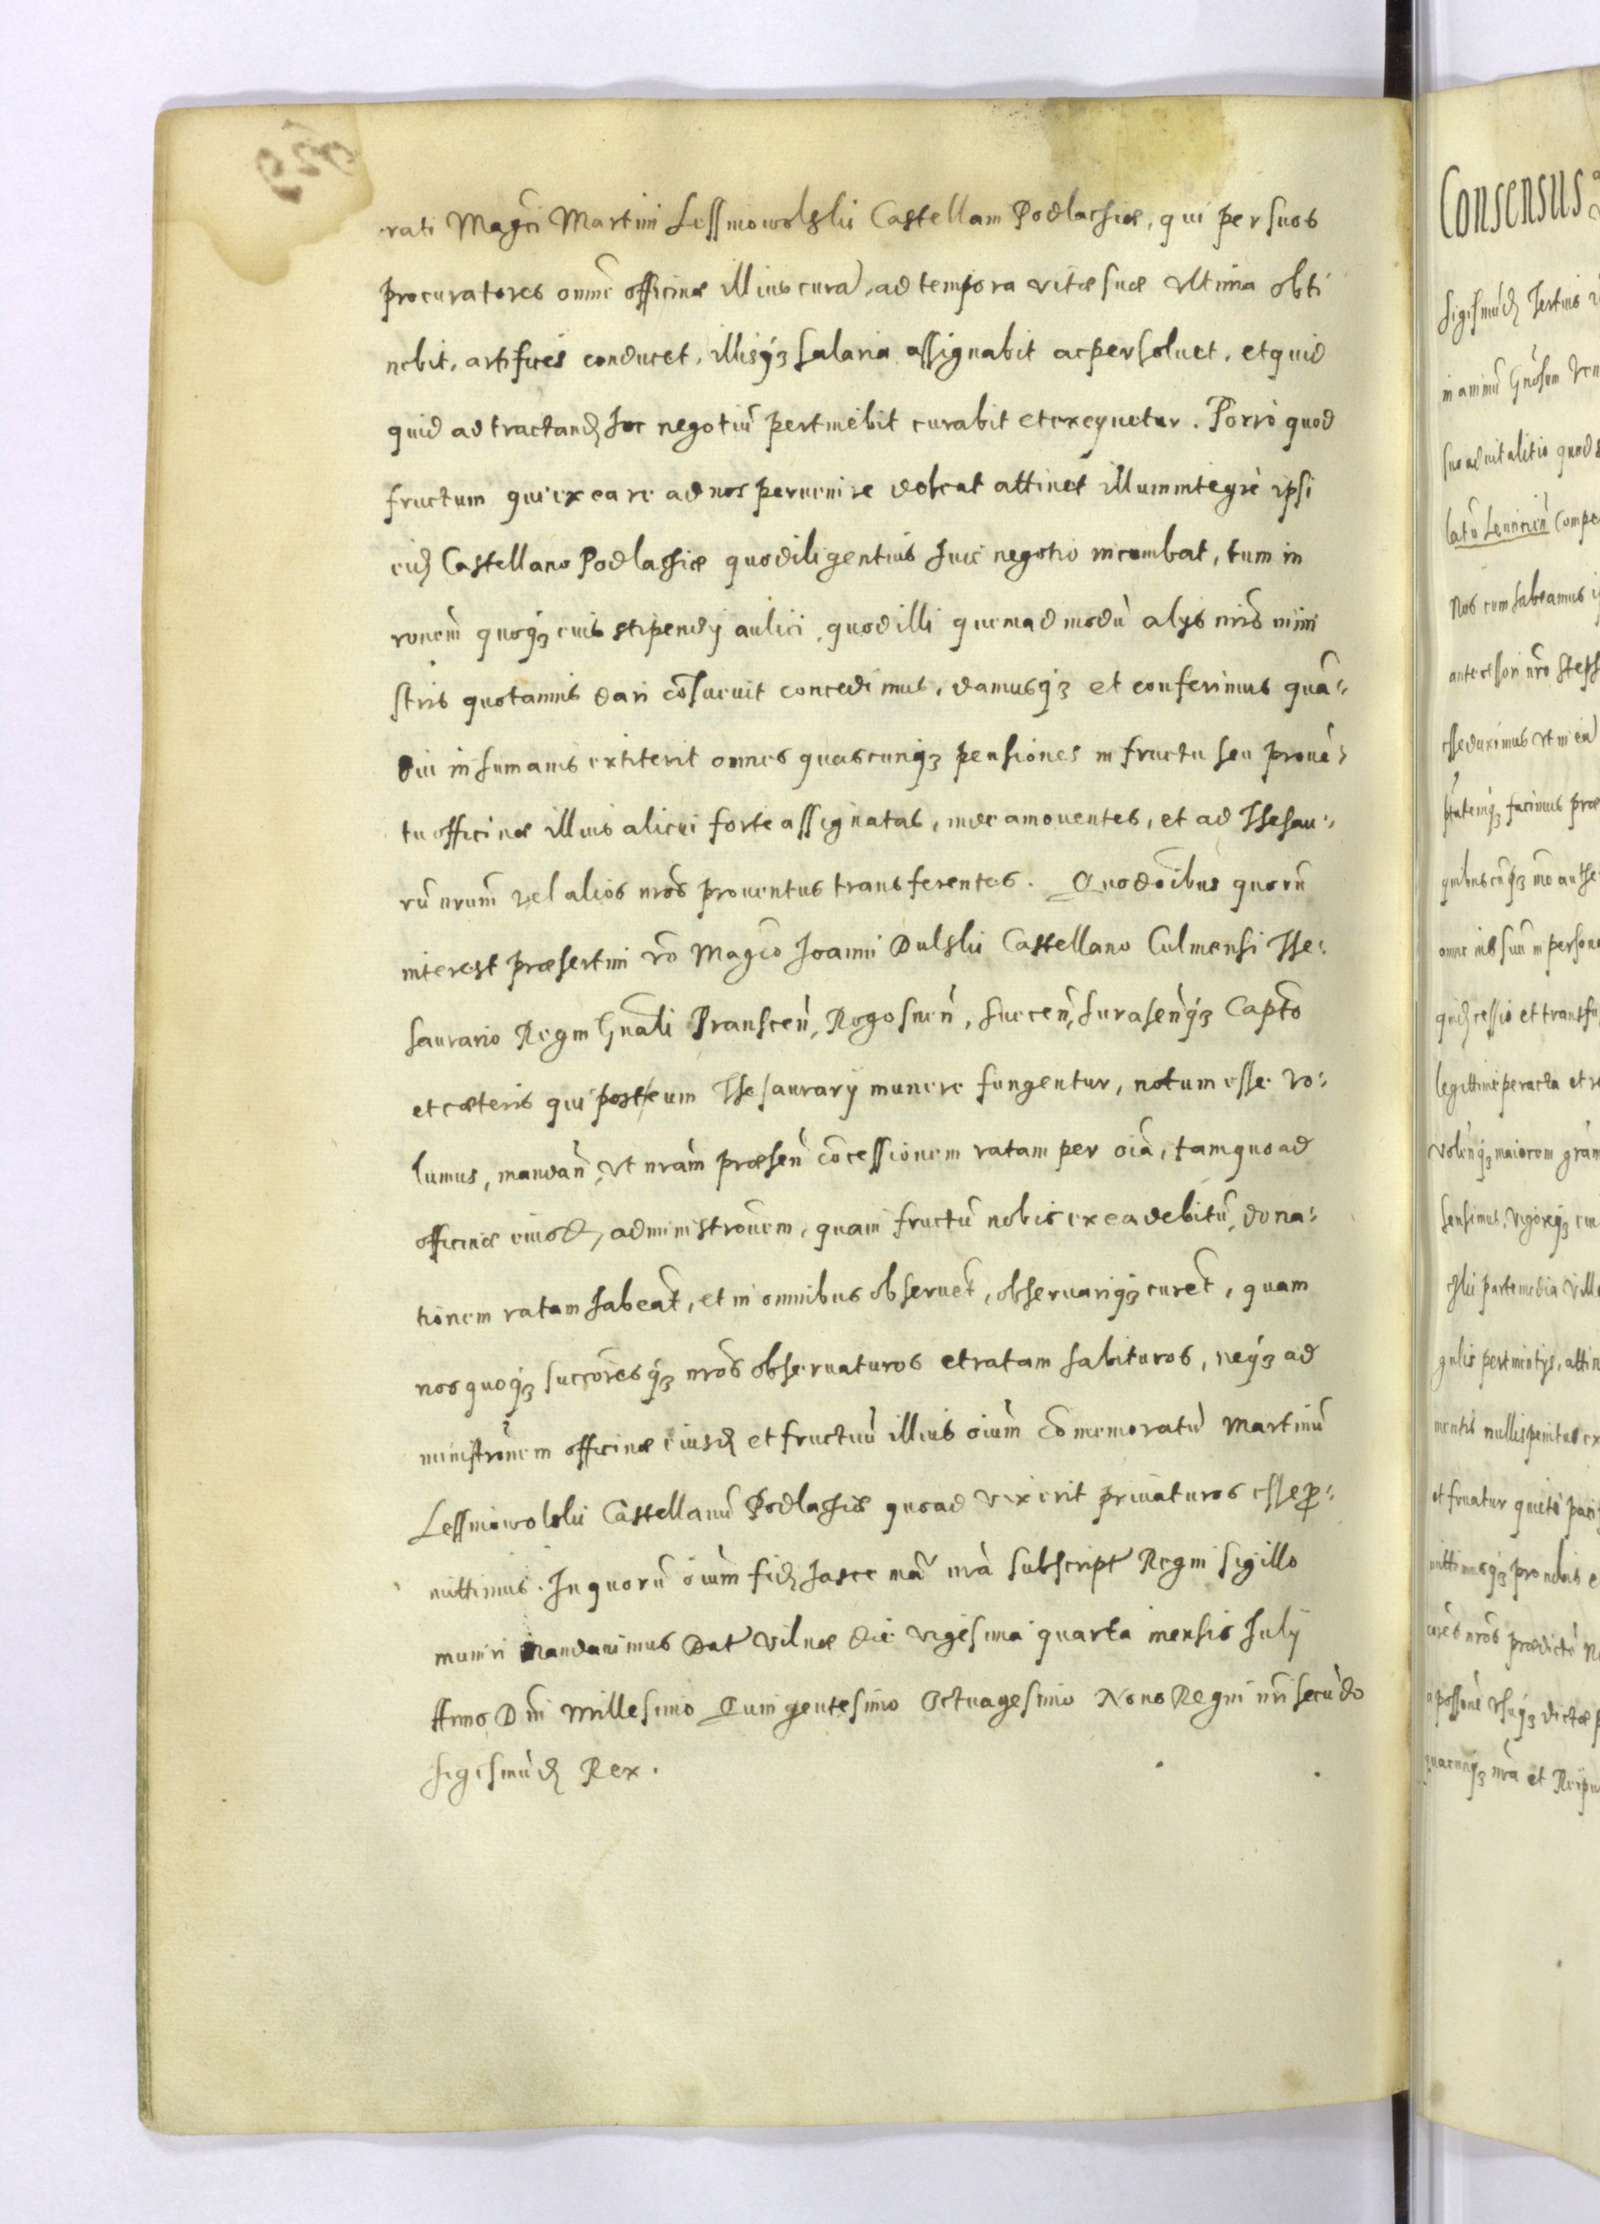 rati Magci Martini Lessniowolskii Castellani Podlachiæ, qui per suos
procuratores omnē officinæ illius curā, ad tempora vitæ suæ vltima obti
nebit, artifices conducet, illisq3 salaria assignabit ac persoluet, et quid
quid ad tractand hoc negotiū pertinebit curabit et exequetur. Porrò quod
fructum qui ex ea re ad nos peruenire debeat attinet illum integrè ipsi
eid Castellano Podlachiæ quo diligentius huic negotio incumbat, tum in
ronem quoq3 eius stipendÿ aulici, quod illi quemadmodū alÿs nris mini
stris quotannis dari cōsueuit concedimus, damusq3 et conferimus quā=
diu in humanis extiterit omnes quascunq3 pensiones in fructu seu prouē=
tu officinæ illius alicui forte assignatas, inde amouentes, et ad Thesau=
rū nrum vel alios nros prouentus transferentes. Quod oibus quorū
interest præsertim vo Magco Joanni Dulskii Castellano Culmensi The=
saurario Regni Gnali Branscen, Rogosnen, Suecen, Surasenq3 Capto
et cæteris qui post eum Thesaurarÿ munere fungentur, notum esse vo=
lumus, mandan, vt nram præsen cōcessionem ratam per oia, tam quo ad
officinæ eiusd, administronem, quam fructū nobis ex ea debitū, dona=
tionem ratam habeat, et in omnibus obseruet, obseruariq3 curet, quam
nos quoq3 succoresq3 nros obseruaturos et ratam habituros, neq3 ad
ministronem officinæ eiusd et fructuū illius oium cōmemoratū Martinū
Lessniowolskii Castellanū Podlachiæ quoad vixerit priuaturos esse pro=
mittimus. In quorū oium fid hasce manu nra subscript Regni sigillo
muniri mandauimus Dat Vilnæ die vigesima quarta mensis Julÿ
Anno Dni Millesimo Quingentesimo Octuagesimo Nono Regni nri secūdo
Sigismūd Rex.
Consensus
Sigismūd Tertius
in animū Gnosum
suo aduitalitio quod
Nos cum habeamus
antecessori nro Steph
esse duximus vt in eū
facimus præ
legittime peracta et
maiorem gram
parte media Villæ
mentis nullis penitus ex
et fruatur quietè
nros prædictū
nra et Reipu